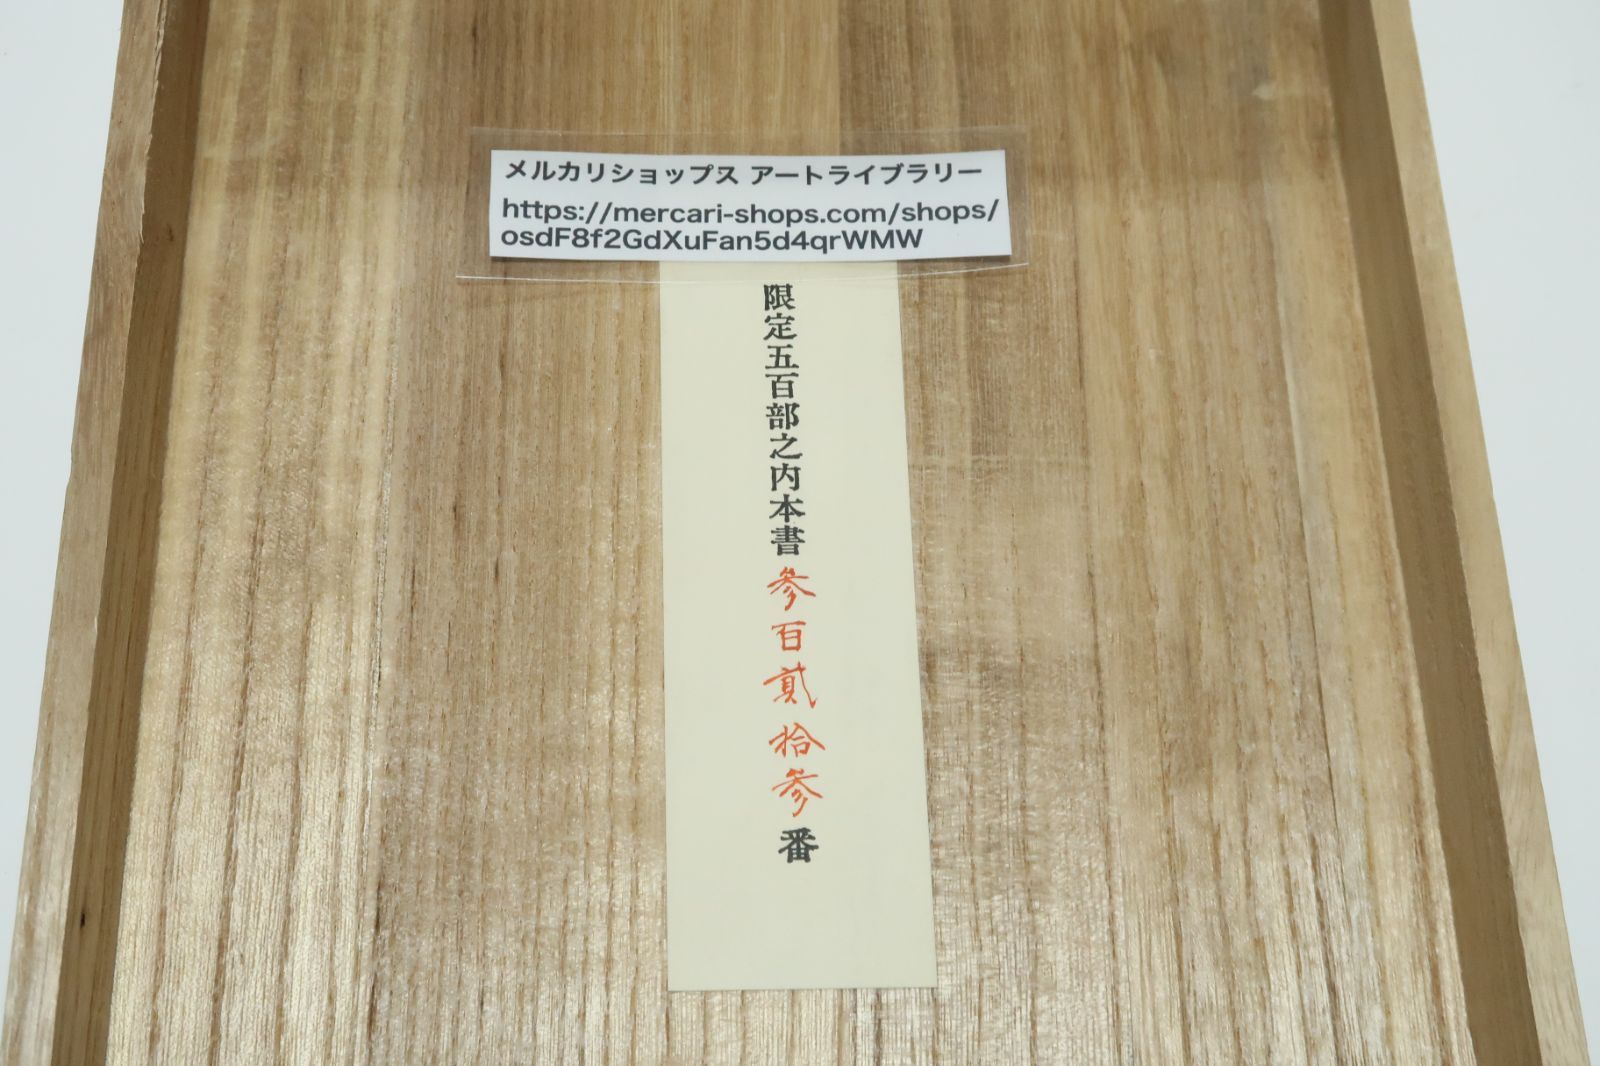 メルカリショップス アートライブラリー
https://mercari-shops.com/shops/
osdF8f2GdXuFan5d4qrWMW
限定五百部之内本書参百貳拾参番